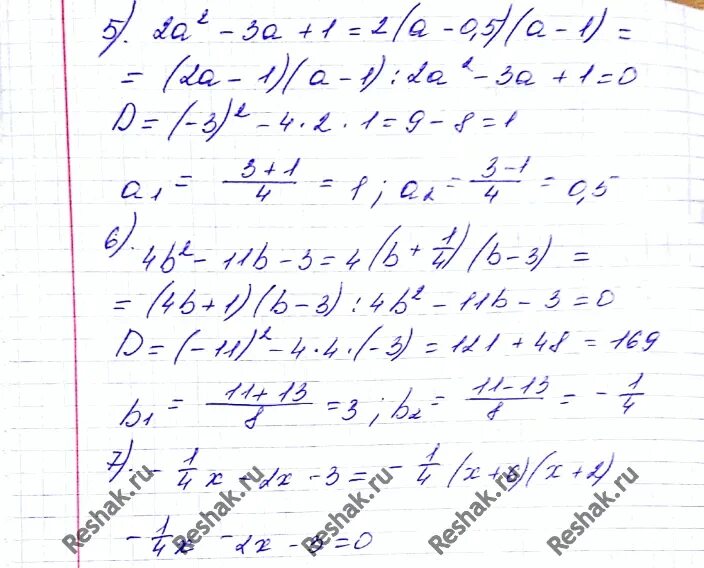 5). 2a² - 3a + 1 = 2(a - 0,5)(a - 1) =
= (2a - 1)(a - 1) : 2a² - 3a + 1 = 0
D = (-3)² - 4 · 2 · 1 = 9 - 8 = 1
a₁ = (3+1)/4 = 1 ; a₂ = (3-1)/4 = 0,5
6). 4b² - 11b - 3 = 4(b + 1/4)(b - 3) =
= (4b + 1)(b - 3) : 4b² - 11b - 3 = 0
D = (-11)² - 4 · 4 · (-3) = 121 + 48 = 169
b₁ = (11+13)/8 = 3 ; b₂ = (11-13)/8 = - 1/4
7). - 1/4 x - 2x - 3 = - 1/4 (x + 6)(x + 2)
- 1/4 x - 2x - 3 = 0
Reshak.ru Reshak.ru Reshak.ru Reshak.ru Reshak.ru